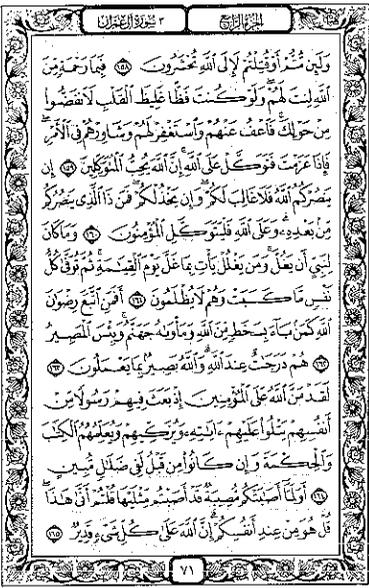 الجزء الرابع
٣ سورة آل عمران
وَلَئِن مُّتُّمْ أَوْ قُتِلْتُمْ لَإِلَى ٱللَّهِ تُحْشَرُونَ ١٥٨ فَبِمَا رَحْمَةٍ مِّنَ
ٱللَّهِ لِنتَ لَهُمْ وَلَوْ كُنتَ فَظًّا غَلِيظَ ٱلْقَلْبِ لَٱنفَضُّوا۟
مِنْ حَوْلِكَ فَٱعْفُ عَنْهُمْ وَٱسْتَغْفِرْ لَهُمْ وَشَاوِرْهُمْ فِى ٱلْأَمْرِ
فَإِذَا عَزَمْتَ فَتَوَكَّلْ عَلَى ٱللَّهِ إِنَّ ٱللَّهَ يُحِبُّ ٱلْمُتَوَكِّلِينَ ١٥٩ إِن
يَنصُرْكُمُ ٱللَّهُ فَلَا غَالِبَ لَكُمْ وَإِن يَخْذُلْكُمْ فَمَن ذَا ٱلَّذِى يَنصُرُكُم
مِّنۢ بَعْدِهِۦ وَعَلَى ٱللَّهِ فَلْيَتَوَكَّلِ ٱلْمُؤْمِنُونَ ١٦٠ وَمَا كَانَ
لِنَبِىٍّ أَن يَغُلَّ وَمَن يَغْلُلْ يَأْتِ بِمَا غَلَّ يَوْمَ ٱلْقِيَـٰمَةِ ثُمَّ تُوَفَّىٰ كُلُّ
نَفْسٍ مَّا كَسَبَتْ وَهُمْ لَا يُظْلَمُونَ ١٦١ أَفَمَنِ ٱتَّبَعَ رِضْوَٰنَ
ٱللَّهِ كَمَنۢ بَآءَ بِسَخَطٍ مِّنَ ٱللَّهِ وَمَأْوَىٰهُ جَهَنَّمُ وَبِئْسَ ٱلْمَصِيرُ
١٦٢ هُمْ دَرَجَـٰتٌ عِندَ ٱللَّهِ وَٱللَّهُ بَصِيرٌۢ بِمَا يَعْمَلُونَ ١٦٣
لَقَدْ مَنَّ ٱللَّهُ عَلَى ٱلْمُؤْمِنِينَ إِذْ بَعَثَ فِيهِمْ رَسُولًا مِّنْ
أَنفُسِهِمْ يَتْلُوا۟ عَلَيْهِمْ ءَايَـٰتِهِۦ وَيُزَكِّيهِمْ وَيُعَلِّمُهُمُ ٱلْكِتَـٰبَ
وَٱلْحِكْمَةَ وَإِن كَانُوا۟ مِن قَبْلُ لَفِى ضَلَـٰلٍ مُّبِينٍ
١٦٤ أَوَلَمَّآ أَصَـٰبَتْكُم مُّصِيبَةٌ قَدْ أَصَبْتُم مِّثْلَيْهَا قُلْتُمْ أَنَّىٰ هَـٰذَا
قُلْ هُوَ مِنْ عِندِ أَنفُسِكُمْ إِنَّ ٱللَّهَ عَلَىٰ كُلِّ شَىْءٍ قَدِيرٌ ١٦٥
٧١